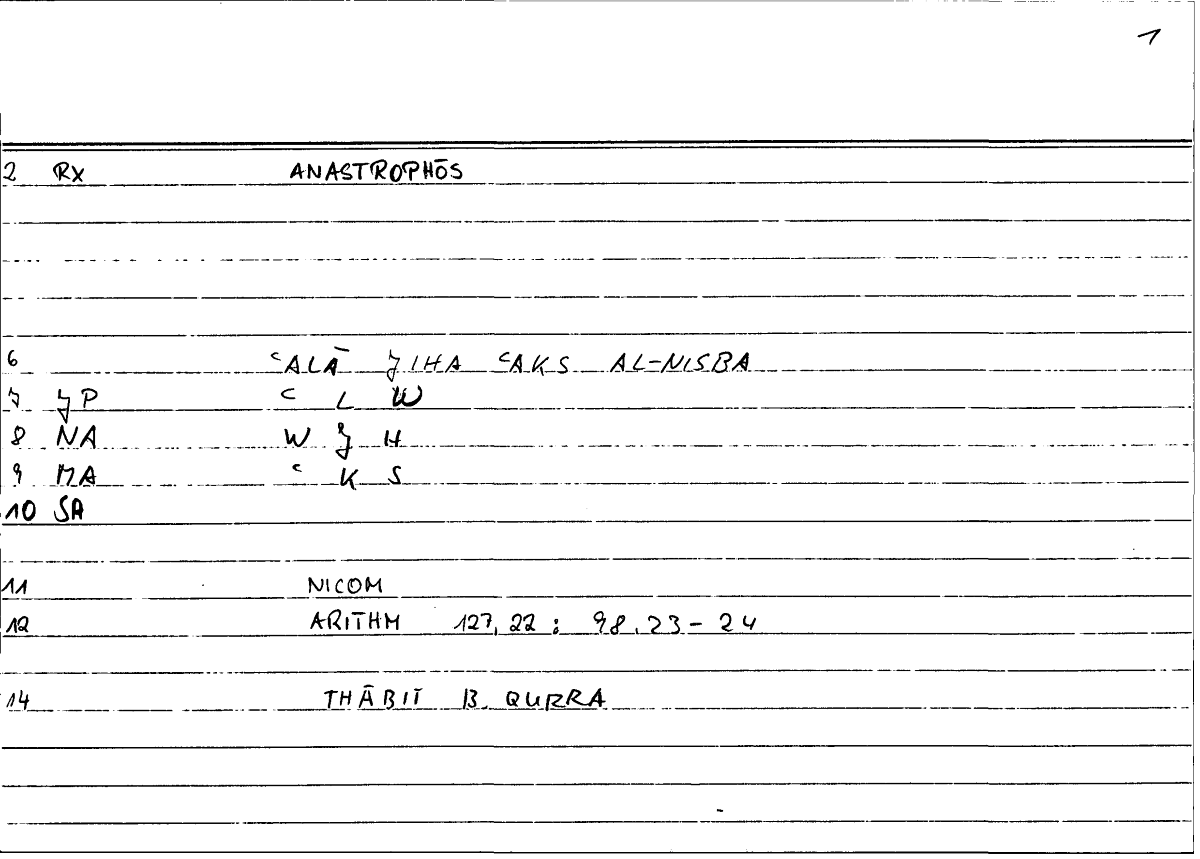 1
2 RX ANASTROPHŌS
6 ʿALĀ JIHA ʿAKS AL-NISBA
7 JP ʿ L W
8 NA W J H
9 MA ʿ K S
10 SA
11 NICOM
12 ARITHM 127,22 : 98.23-24
14 THĀBIT B. QURRA